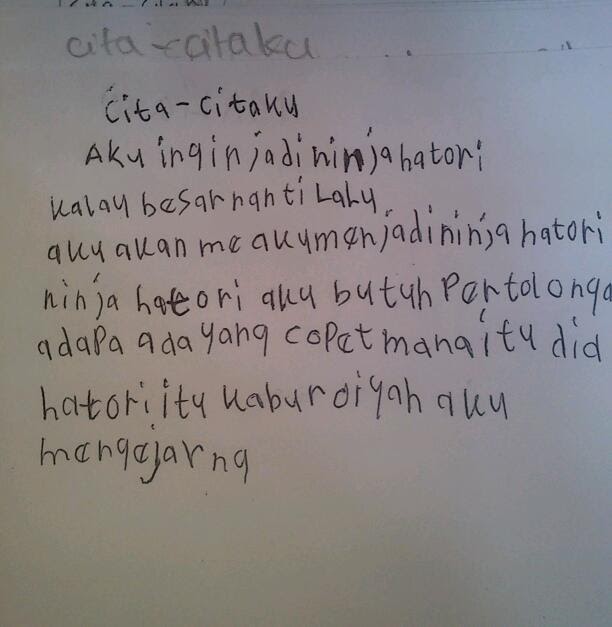 cita-citaku
Cita-citaku
Aku ingin jadi ninja hatori
kalau besar nanti Lalu
aku akan me akumenjadi ninja hatori
ninja hatori aku butuh Pertolonga
adapa ada yang copet mana itu dia
hatori itu kabur oiyah aku
mengejar ng